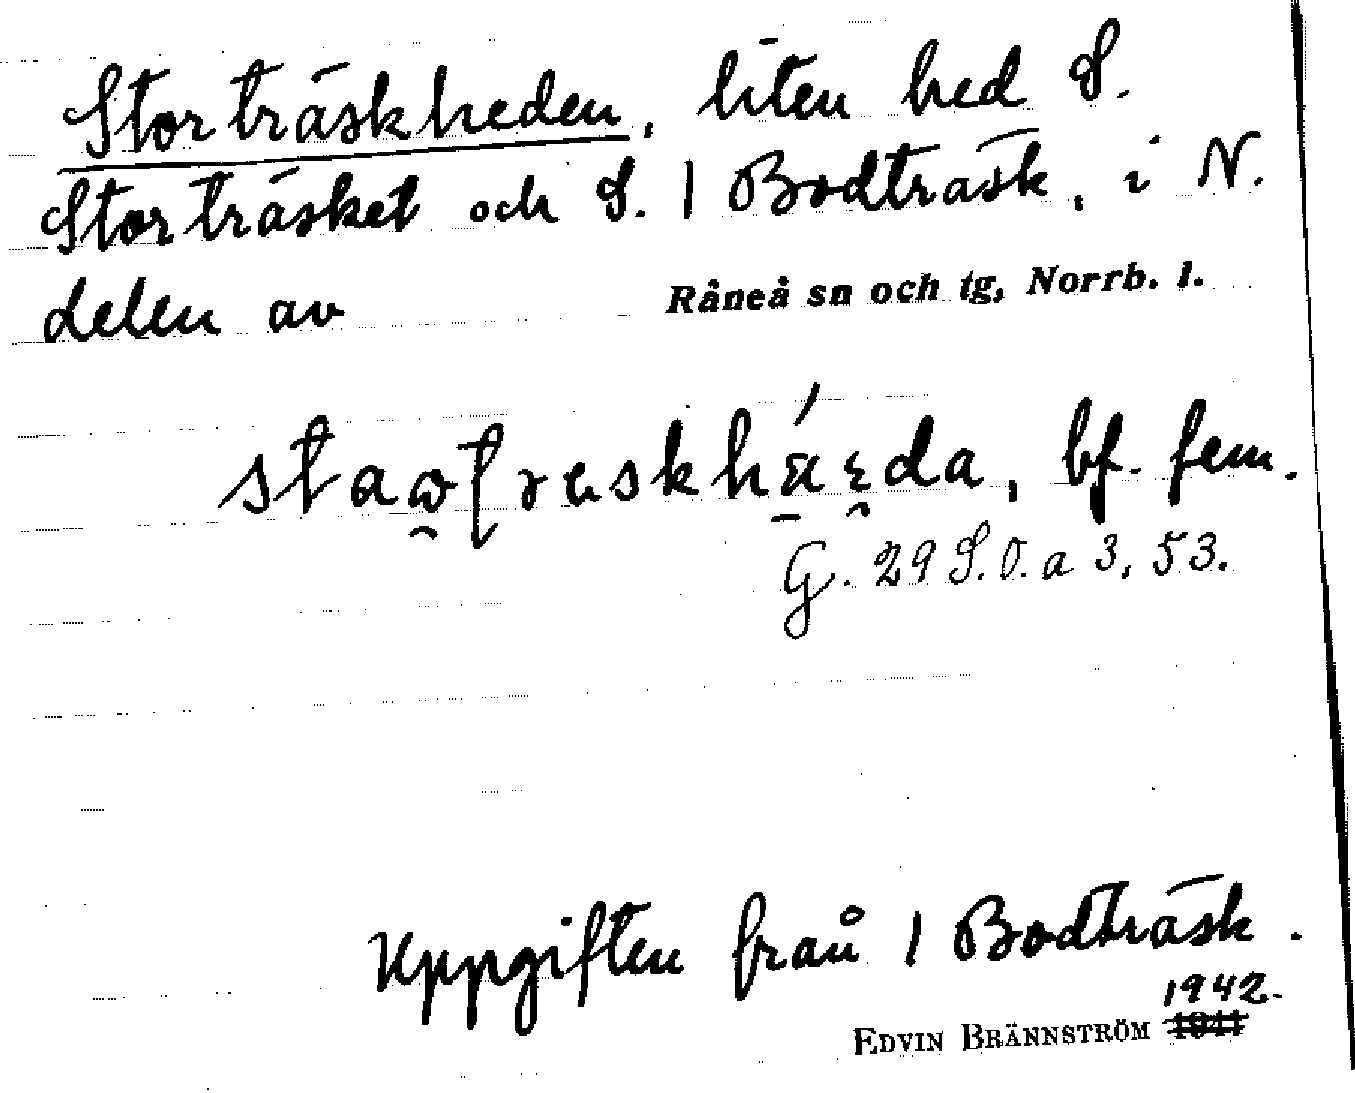 Storträskheden, liten hed S.
Storträsket och S. 1 Bodträsk, i N.
delen av Råneå sn och tg, Norrb. l.
bf. fem.
G. 29 S.O. a 3, 53.
Uppgiften från 1 Bodträsk.
1942.
EDVIN BRÄNNSTRÖM 1941